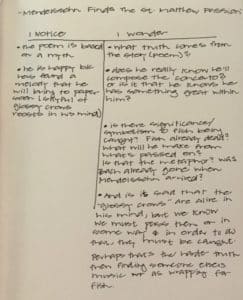 -Mendelssohn Finds the St. Matthew Passion-
I Notice
• the poem is based
on a myth
• he is happy b/c
he's found a
melody that he
will bring to paper
soon (
glossy crows
roosts in his mind)
I Wonder
• what truth comes from
the story (poem)?
• does he really know he'll
compose the concerto?
or is it that he knows he
has something great within
him?
• is there significance/
symbolism to fish being
caught? Fish already dead?
what will he make from
what's passed on?
is that the metaphor? was
Bach already gone when
Mendelssohn arrived?
• And is it sad that the
"glossy crows" are alive in
his mind, but we know
we must pass them on in
some way & in order to do
that, they must be caught.
Perhaps that's the harder truth
than finding someone else's
music as wrapping for
fish.